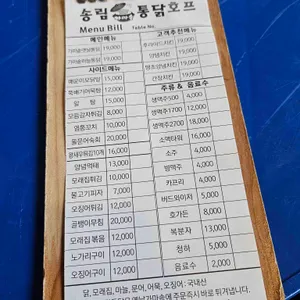 송림 통닭호프
Menu Bill Table No.
메인메뉴 고객추천메뉴
19,000 후라이드치킨 19,000
19,000 양념치킨 19,000
사이드메뉴 19,000
15,000 간장치킨 19,000
12,000 주류 & 음료수
알탕 15,000 생맥주500 4,000
모듬감자튀김 8,000 생맥주1700 12,000
옛날꼬치 10,000 생맥주2700 18,000
골뱅이 소맥타워 16,000
16,000 소주 4,000
안녕먹태 13,000 병맥주 4,000
모래집튀김 10,000 카프리 4,000
불고기피자 7,000 버드와이저 5,000
오징어튀김 12,000 호가든 8,000
골뱅이무침 20,000 복분자 13,000
모래집볶음 12,000 청하 5,000
노가리구이 12,000 음료수 2,000
오징어구이 12,000
닭, 모래집, 마늘, 문어, 어묵, 오징어: 국내산
가마솥에 주문즉시 바로 튀겨냅니다.